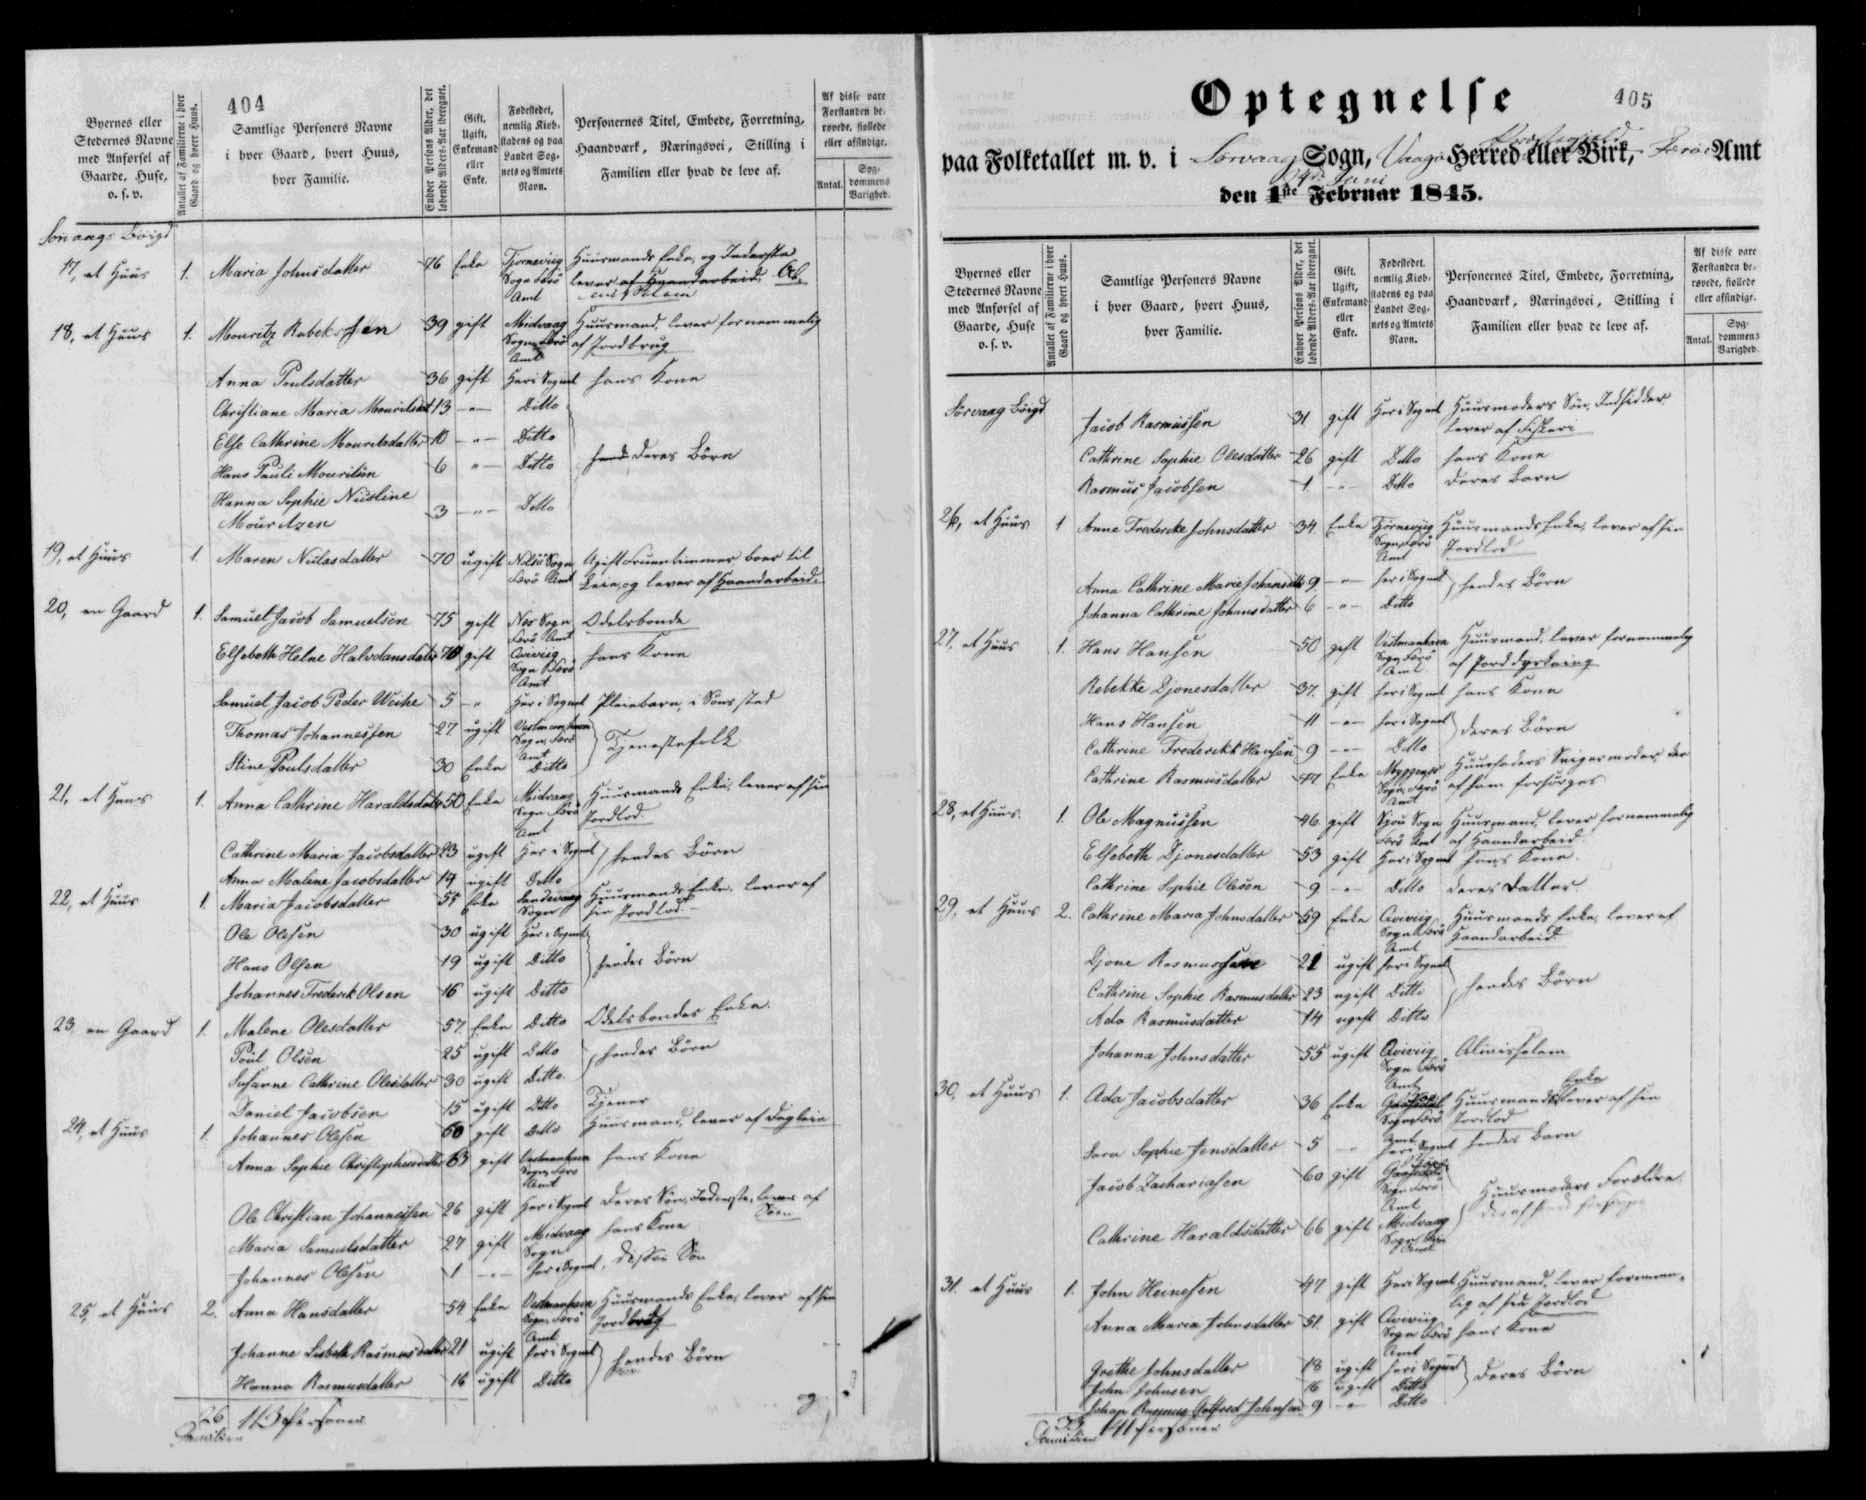 404
Byernes eller
Stedernes Navne
med Anførsel af
Gaarde, Huse,
o. s. v.
Antallet af Familierne i hver
Gaard og hvert Huus.
Samtlige Personers Navne
i hver Gaard, hvert Huus,
hver Familie.
Enhver Persons Alder, det
løbende Alders-Aar iberegnet.
Gift,
Ugift,
Enkemand
eller
Enke.
Fødestedet,
nemlig Kiøb-
stadens og paa
Landet Sog-
nets og Amtets
Navn.
Personernes Titel, Embede, Forretning,
Haandværk, Næringsvei, Stilling i
Familien eller hvad de leve af.
Af disse vare
Forstanden be-
røvede, fiollede
eller afsindige.
Antal.
Syg-
dommens
Varighed.
Sörvaags Böigd
17, et Huus 1. Maria Johnsdatter 76 Enke Tjörnevig Huusmands Enke, og Inderste
Sogn Færö lever af Haandarbeide,
Amt
18, et Huus 1. Mouritz Rabeksen 39 gift Midvaag Huusmand, lever fornemmelig
Sogn, Færö af Jordbrug
Amt
Anna Poulsdatter 36 gift Her i Sognet hans Kone
Christiane Maria Mouritsdat 13 -"- Ditto
Else Cathrine Mouritsdatter 10 -"- Ditto
Hans Pauli Mouritsen 6 "- Ditto deres Börn
Hanna Sophie Niusline
Mouritzen 3 -"- Ditto
19, et Huus 1. Maren Nielasdatter 70 ugift Nolsö Sogn Ugift Fruentimmer boer til
Færö Amt Leie, og lever af Haandarbeide
20, en Gaard 1. Samuel Jacob Samuelsen 75 gift Nes Sogn Odelsbonde
Færö Amt
Elsebeth Helne Halvdansdatter 70 gift Qvivig hans Kone
Sogn Færö
Amt
Samuel Jacob Peder Weihe 5 -"- Her i Sognet Pleiebarn, i Söns sted
Thomas Johannessen 27 ugift Vestmanhavn
Sogn, Færö Tjenestefolk
Amt
Stine Poulsdatter 30 Enke Ditto
21, et Huus 1. Anna Cathrine Haraldsdatter 50 Enke Midvaag Huusmands Enke, lever af sin
Sogn Færö Jordlod.
Amt
Cathrine Maria Jacobsdatter 23 ugift Her i Sognet hendes Börn
Anna Malene Jacobsdatter 14 ugift Ditto
22, et Huus 1. Maria Jacobsdatter 55 Enke Sandevaag Huusmands Enke, lever af
Sogn sin Jordlod
Ole Olesen 30 ugift Her i Sognet
Hans Olsen 19 ugift Ditto hendes Börn
Johannes Frederik Olsen 16 ugift Ditto
23 en Gaard 1. Malene Olesdatter 57 Enke Ditto Odelsbondes Enke.
Poul Olsen 25 ugift Ditto hendes Börn
Susanne Cathrine Olesdatter 30 ugift Ditto
Daniel Jacobsen 15 ugift Ditto Tjener
24, et Huus 1. Johannes Olesen 60 gift Ditto Huusmand, lever af Dagleie
Anna Sophie Christophersdatter 63 gift Vestmanhavn hans Kone
Sogn, Færö
Amt
Ole Christian Johannessen 26 gift Her i Sognet deres Sön, Inderste, lever af
Maria Samuelsdatter 27 gift Midvaag hans Kone
Sogn
Johannes Olesen 1 -"- Her i Sognet, disses Sön
25, et Huus 2. Anna Hansdatter 54 Enke Vestmanhavn Huusmands Enke, lever af sin
Sogn, Færö Jordbrug
Amt
Johanne Lisbeth Rasmusdatter 21 ugift her i Sognet hendes Börn
Hanna Rasmusdatter 16 ugift Ditto
26 113 Personer
Familier
Optegnelse 405
paa Folketallet m. v. i Sörvaag Sogn, Vaagö Herred eller Birk, Færöe Amt
den 1ste Februar 1845.
Byernes eller
Stedernes Navne
med Anførsel af
Gaarde, Huse
o. s. v.
Antallet af Familierne i hver
Gaard og hvert Huus.
Samtlige Personers Navne
i hver Gaard, hvert Huus,
hver Familie.
Enhver Persons Alder, det
løbende Alders-Aar iberegnet.
Gift,
Ugift,
Enkemand
eller
Enke.
Fødestedet,
nemlig Kiøb-
stadens og paa
Landet Sog-
nets og Amtets
Navn.
Personernes Titel, Embede, Forretning,
Haandværk, Næringsvei, Stilling i
Familien eller hvad de leve af.
Af disse vare
Forstanden be-
røvede, fiollede
eller afsindige.
Antal.
Syg-
dommens
Varighed.
Sörvaag Böigd
Jacob Rasmussen 31 gift Her i Sognet Huusmoders Sön, Indsidder
lever af Fiskeri
Cathrine Sophie Olesdatter 26 gift Ditto hans Kone
Rasmus Jacobsen 1 -"- Ditto deres Barn
26, et Huus 1 Anne Frederikke Johnsdatter 34 Enke Tjörnevig Huusmands Enke, lever af sin
Sogn, Færö Jordlod
Amt
Anna Cathrine Marie Johansdtr 9 -"- her i Sognet hendes Börn
Johanna Cathrine Johansdatter 6 -"- Ditto
27, et Huus 1. Hans Hansen 50 gift Vestmanhavn Huusmand, lever fornemmelig
Sogn Færö af Jorddyrkning
Amt
Rebekke Djonesdatter 37. gift her i Sognet hans Kone
Hans Hansen 11 -"- her i Sognet deres Börn
Cathrine Frederikke Hansen 9 -"- Ditto
Cathrine Rasmusdatter 77 Enke Myggenæs Huusfaders Svigermoder, der
Sogn, Færö af ham forsörges
Amt
28, et Huus. 1. Ole Magnussen 46 gift Sjou Sogn Huusmand, lever fornemmelig
Færö Amt af Haandarbeid
Elsebeth Djonesdatter 53 gift Her i Sognet hans Kone.
Cathrine Sophie Olesen 9 -"- Ditto deres Datter.
29, et Huus 2. Cathrine Maria Johnsdatter 59 Enke Qvivig Huusmands Enke, lever af
Sogn Færö Haandarbeid.
Amt
Djone Rasmussen 21 ugift her i Sognet
Cathrine Sophie Rasmusdatter 23 ugift Ditto hendes Börn
Ada Rasmusdatter 14 ugift Ditto
Johanna Johnsdatter 55 ugift Qvivig Almisselem
Sogn Færö
Amt
30, et Huus 1. Ada Jacobsdatter 36 Enke Huusmands Enke lever af sin
Sogn Færö Jordlod
Amt
Sara Sophie Jensdatter 5 -"- her i Sognet hendes Barn
Jacob Zachariasen 60 gift
Sogn Færö Huusmoders Forældre
Amt
Cathrine Haraldsdatter 66 gift Midvaag
Sogn Færö
Amt
31. et Huus 1. John Heinesen 47 gift Her i Sognet Huusmand, lever fornem-
lig af sin Jordlod
Anna Maria Johnsdatter 51. gift Qvivig
Sogn Færö hans Kone
Amt
Grethe Johnsdatter 18 ugift her i Sognet deres Börn
John Johnsen 16 ugift Ditto
Johan Rasmus Gotfred Johnsen 9 -"- Ditto
33 141 Personer
Familier